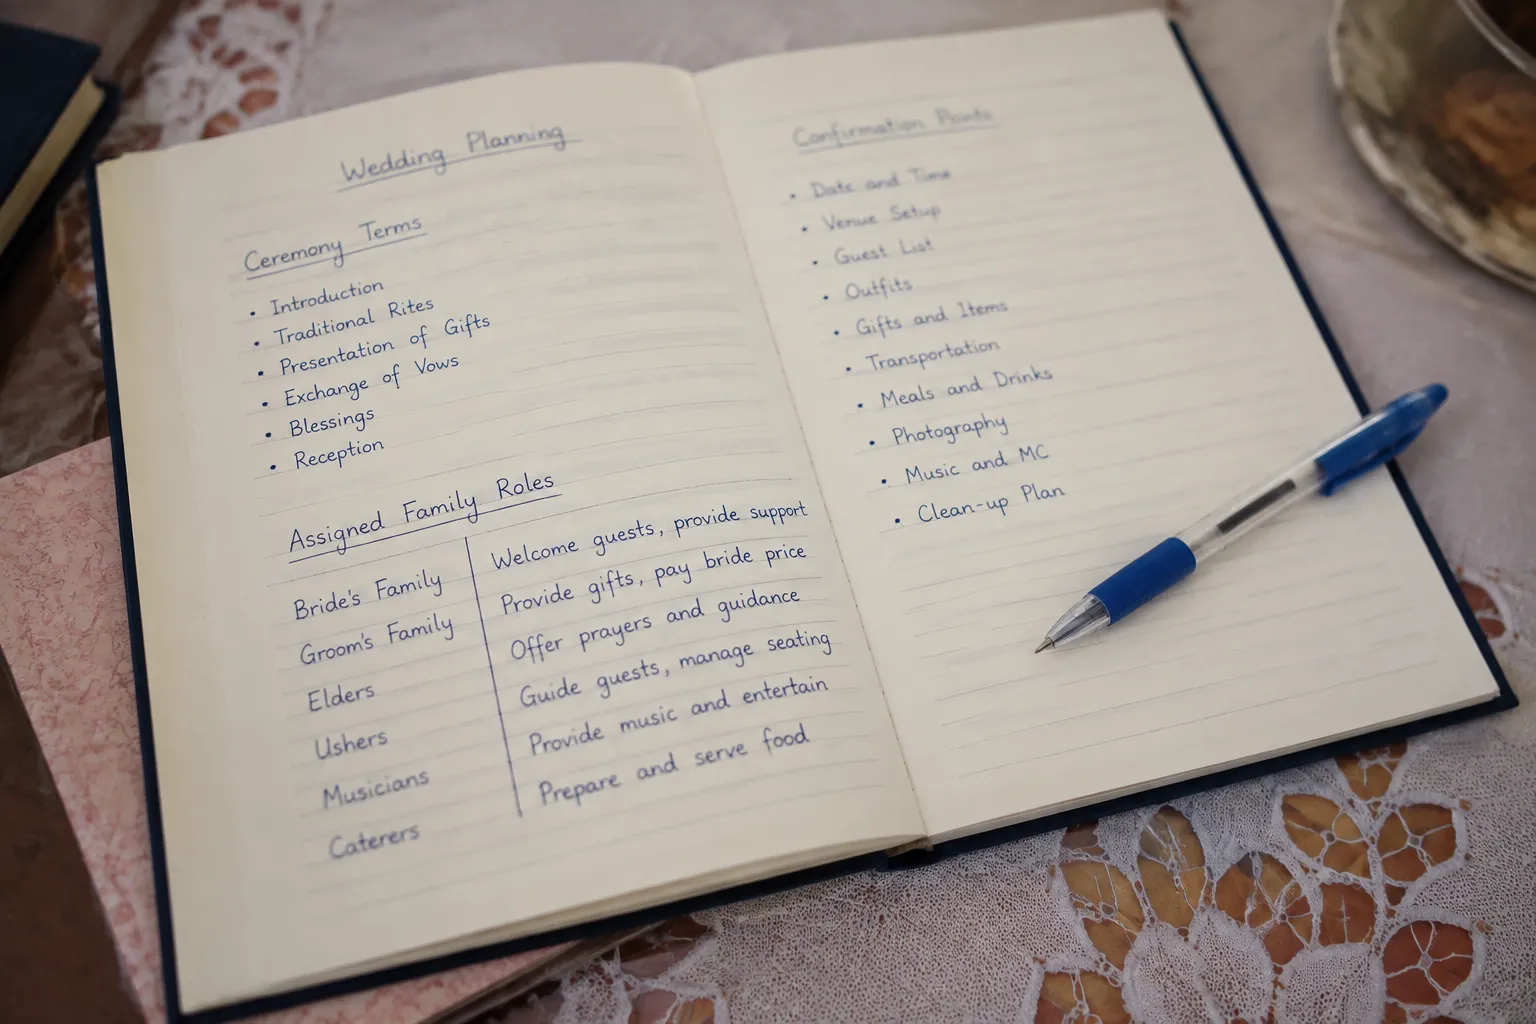 Wedding Planning
Ceremony Terms
• Introduction
• Traditional Rites
• Presentation of Gifts
• Exchange of Vows
• Blessings
• Reception
Assigned Family Roles
Bride's Family | Welcome guests, provide support
Groom's Family | Provide gifts, pay bride price
Elders | Offer prayers and guidance
Ushers | Guide guests, manage seating
Musicians | Provide music and entertain
Caterers | Prepare and serve food
Confirmation Points
• Date and Time
• Venue Setup
• Guest List
• Outfits
• Gifts and Items
• Transportation
• Meals and Drinks
• Photography
• Music and MC
• Clean-up Plan